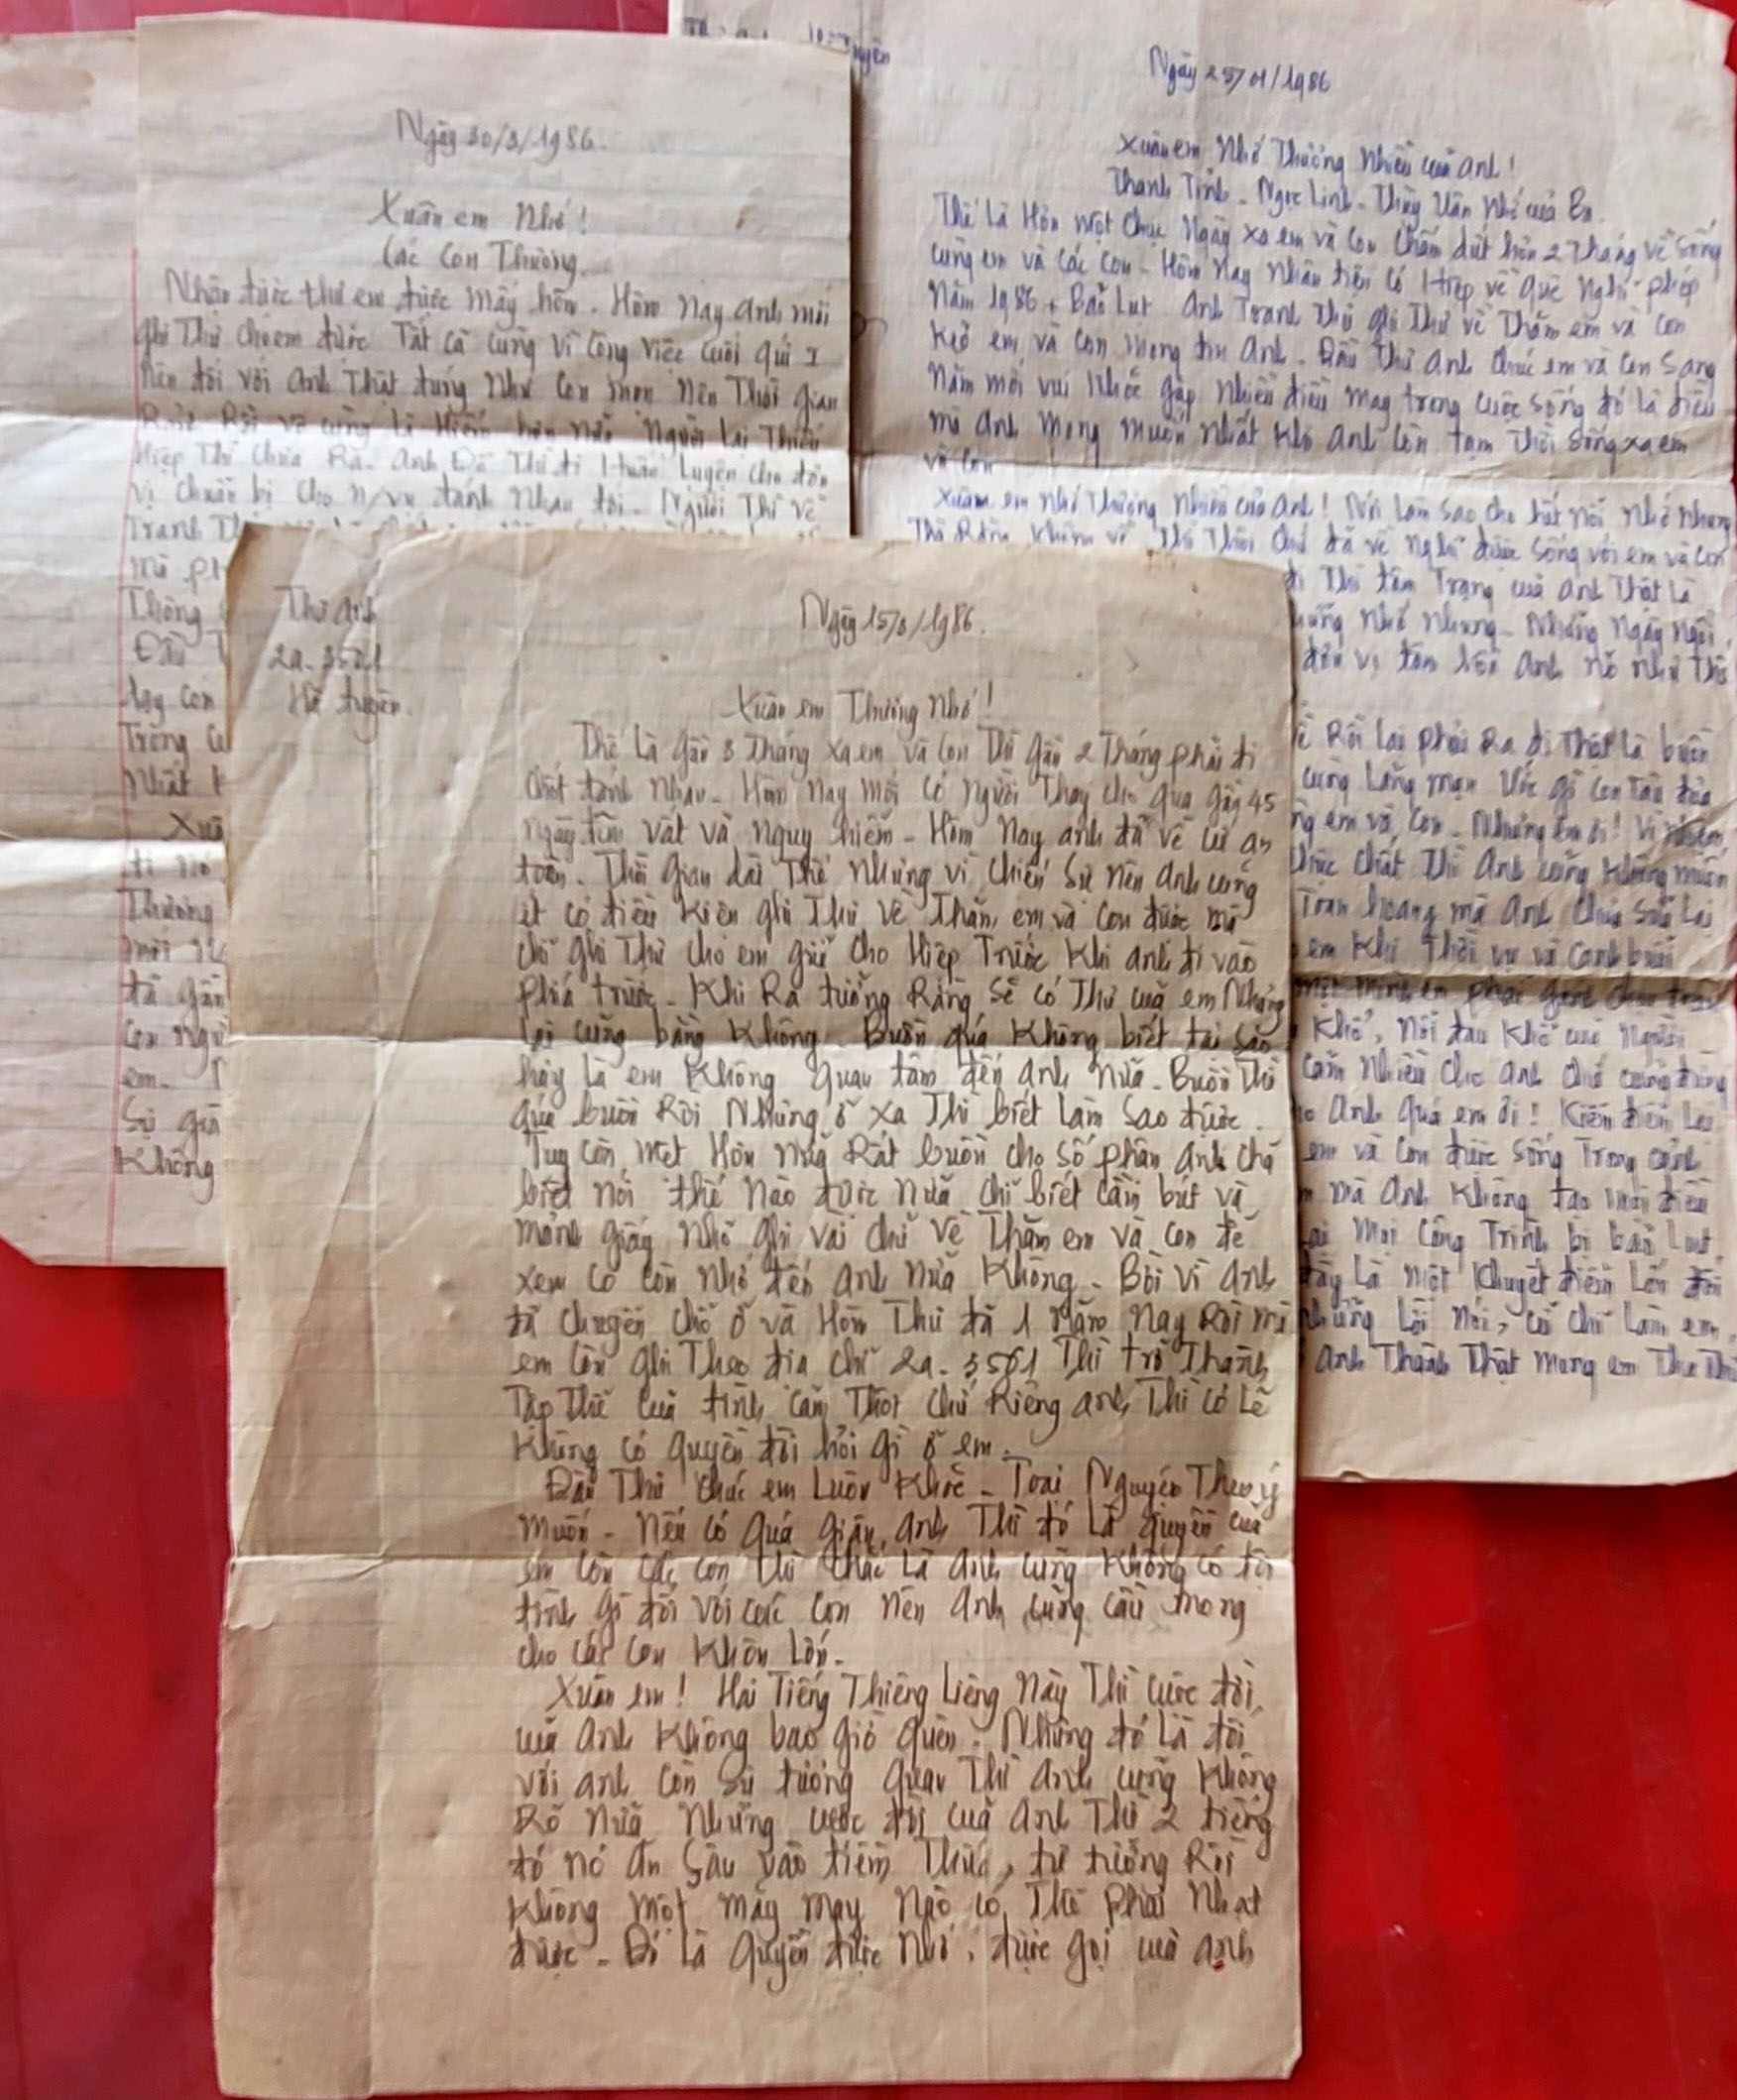 Ngày 30/3/1986.
Xuân em Nhớ!
Các Con Thương.
Nhận được thư em được mấy hôm. Hôm Nay Anh mới
ghi Thư cho em được Tất cả cũng vì Công việc cuối quí I
Nên đối với Anh Thật đúng Như Con mọn Nên Thời gian
Rảnh Rỗi vô cùng là Hiếm hơn Nữa Người Lại Thiếu
Hiệp Thì Chưa Ra. Anh Đã Thì đi Huấn Luyện cho đơn
vị chuẩn bị Cho N/vụ đánh Nhau tới. Người Thì về
Tranh Th
Mà ph
Thông
Đầu T
hay con
Trong cu
Nhất k
Xuâ
đi
Thương
mới
đã gần
Con ngư
em.
Sự giú
Không
Ngày 25/01/1986
Xuân em Nhớ Thương Nhiều của anh!
Thanh Tính - Ngọc Linh - Thùy Vân Nhớ của Ba.
Thế Là Hơn một chục Ngày xa em và Con Chấm dứt hơn 2 Tháng về sống
cùng em và các Con - Hôm Nay Nhân tiện có Hiệp về quê Nghỉ phép
Năm 1986 + Bão Lụt. Anh Tranh Thủ ghi Thư về Thăm em và Con
Kẻo em và Con mong tin Anh. Đầu Thư Anh chúc em và Con Sang
Năm mới vui khỏe gặp Nhiều điều may trong cuộc sống đó là điều
mà Anh mong muốn Nhất khi Anh Còn tạm Thời sống xa em
và Con
Xuân em Nhớ Thương Nhiều của Anh! Nói Làm sao cho hết Nỗi Nhớ Nhung
Thà Rằng Không về Thì Thôi Chứ đã về Nghỉ được sống với em và Con
đi Thì tâm Trạng của Anh Thật Là
Nhớ Nhung. Những Ngày Ngồi
đơn vị tâm hồn Anh Nó như Thế
Rồi Lại phải Ra đi Thật là buồn
cùng Lãng mạn Ước gì Con Tàu đưa
ng em và Con. Nhưng em ơi! Vì
Thực Chất Thì Anh cũng Không muốn
Toan hoang mà Anh Chưa Sửa Lại
em Khi Thời vụ và Canh
một mình em phải gánh chịu
Khổ, Nỗi đau Khổ của Người
Cảm Nhiều Cho Anh Chớ
Anh Quá em ơi! Kiểm điểm Lại
em và Con được sống Trong cảnh
mà Anh Không tạo mọi điều
Lại Mọi Công Trình bị bão Lụt
đây Là một Khuyết điểm Lớn đối
những Lời Nói, Cử Chỉ Làm em
Anh Thành Thật Mong em Tha Thứ
Thư Anh
2a. 3501
Hà tuyên.
Ngày 15/3/1986.
Xuân em Thương Nhớ!
Thế Là Gần 3 Tháng xa em và Con Thì gần 2 Tháng phải đi
Chốt đánh Nhau. Hôm Nay mới có Người Thay cho qua gần 45
Ngày đêm vất vả Nguy hiểm - Hôm Nay anh đã về cứ an
toàn. Thời gian dài Thế Nhưng vì Chiến Sự nên Anh cũng
ít có điều kiện ghi Thư về Thăm em và Con được mà
chỉ ghi Thư cho em gửi cho Hiệp Trước Khi anh đi vào
phía trước. Khi Ra tưởng Rằng sẽ có Thư của em Nhưng
Lại cũng bằng Không. Buồn quá Không biết tại sao
hay Là em Không Quan tâm đến anh Nữa. Buồn Thì
Quá buồn Rồi Nhưng ở xa Thì biết Làm sao được.
Tuy Còn mệt Hơn Nữa Rất buồn cho số phận Anh chả
biết Nói thế Nào được Nữa Chỉ biết cầm bút và
mảnh giấy Nhỏ ghi vài chữ về Thăm em và Con để
xem có Còn Nhớ đến Anh Nữa Không. Bởi vì Anh
đã chuyển Chỗ ở và Hòm Thư đã 1 Năm Nay Rồi mà
em Còn ghi Theo địa chỉ 2a. 3501 Thì trở Thành
Tập Thể của tình cảm Thôi chứ Riêng Anh Thì có Lẽ
Không có Quyền đòi hỏi gì ở em.
Đầu Thư Chúc em Luôn Khỏe - Toại Nguyện Theo ý
muốn - Nếu có Quá giận Anh Thì đó Là Quyền của
em Còn các con thì chắc Là anh cũng Không có tội
tình gì đối với các con nên Anh cũng cầu mong
cho các con Khôn Lớn.
Xuân em! Hai Tiếng Thiêng Liêng Này Thì cuộc đời
của Anh Không bao giờ quên. Nhưng đó Là đối
với anh Còn Sự tương Quan Thì Anh cũng Không
Rõ Nữa Nhưng cuộc đời của Anh Thì 2 tiếng
đó nó ăn sâu vào tiềm Thức, tư tưởng Rồi
Không một mảy may Nào có Thể phai Nhạt
được. Đó Là Quyền được Nhớ, được gọi của anh